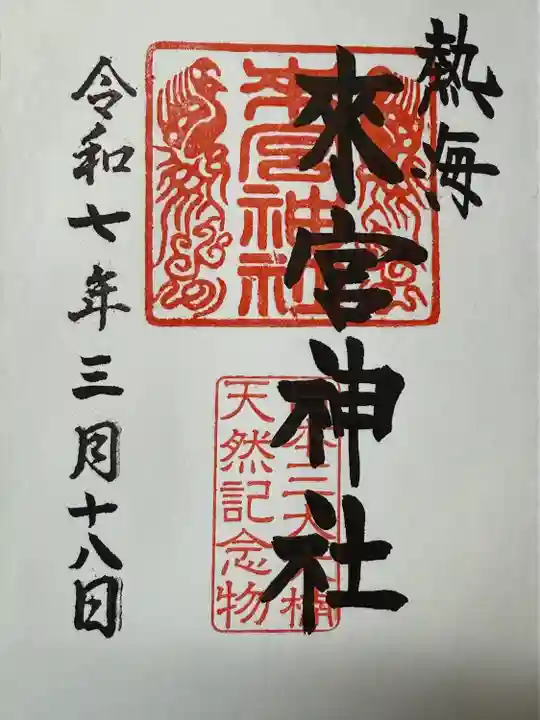 熱海
來宮神社
來宮神社
日本三大大楠
天然記念物
令和七年三月十八日